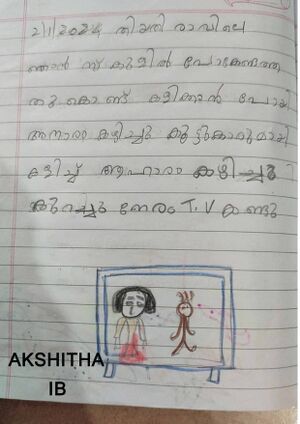 2/1/2024 തിയതി രാവിലെ
ഞാൻ സ്കൂളിൽ പോകേണ്ടാത്ത
തു കൊണ്ട് കളിക്കാൻ പോയി
കഴിച്ചു കൂട്ടുകാരുമായി
കളിച്ച് ആഹാരം കഴിച്ചു
കുറച്ചു നേരം T.V കണ്ടു
AKSHITHA
IB